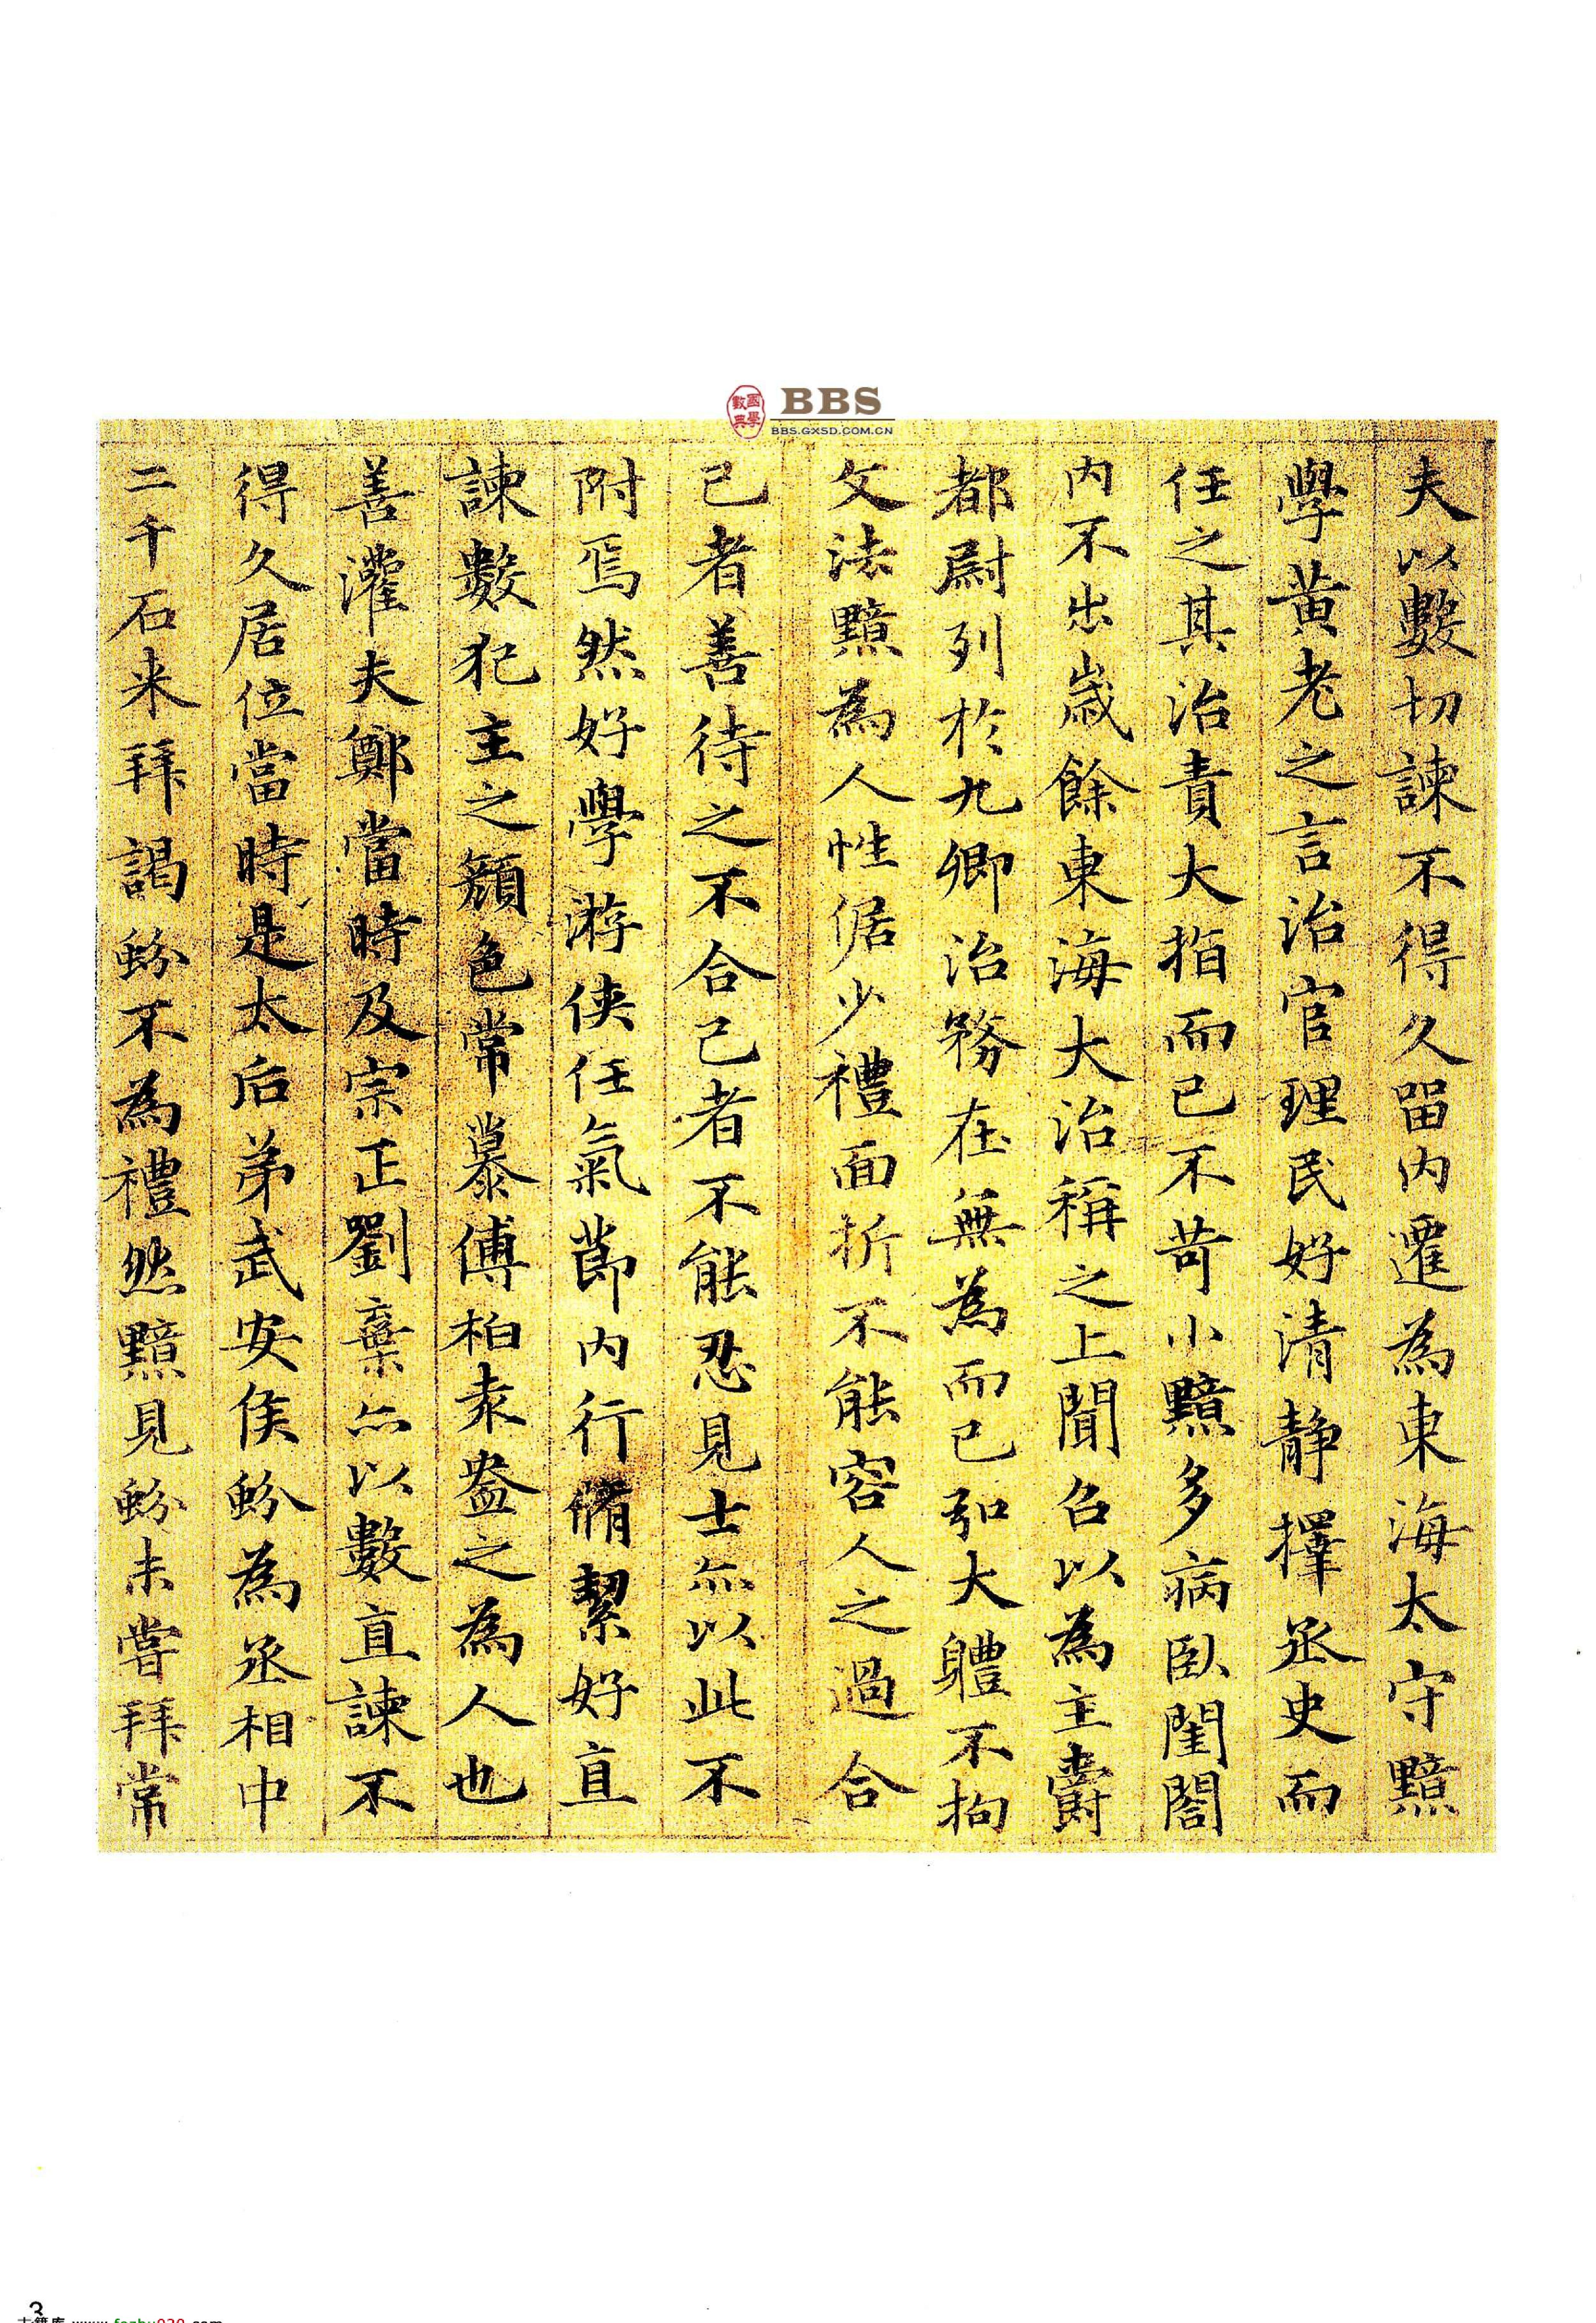 國學數典
BBS
BBS.GXSD.COM.CN
夫以數切諫不得久留內遷為東海太守黯
學黃老之言治官理民好清靜擇丞史而
任之其治責大指而已不苛小黯多病臥閨閤
內不出歲餘東海大治稱之上聞召以為主爵
都尉列於九卿治務在無為而已弘大軆不拘
文法黯為人性倨少禮面折不能容人之過合
己者善待之不合己者不能忍見士亦以此不
附焉然好學游俠任氣節內行脩絜好直
諫數犯主之顏色常慕傅柏袁盎之為人也
善灌夫鄭當時及宗正劉棄亦以數直諫不
得久居位當時是太后弟武安侯蚡為丞相中
二千石來拜謁蚡不為禮然黯見蚡未嘗拜常
3